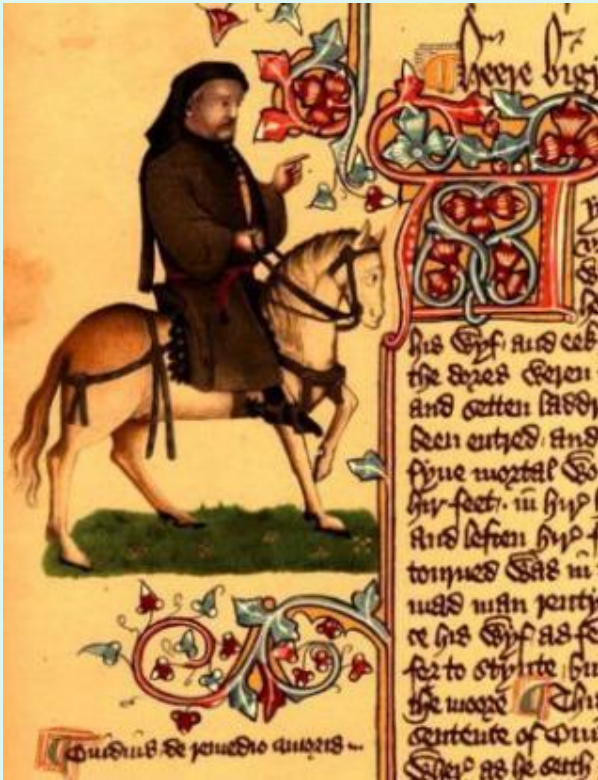 Heere bigy
his Wyf and eek
the dores weren
and setten laddr
been entred and
fyue mortal Wo
hir feet in hir h
and leften hir f
tourned was in
mad man renty
ce his Wyf as fe
for to stynte hir
the moore ¶ This
sentence of Oui
Wher as he seith
¶ Ouidius de remedio amoris